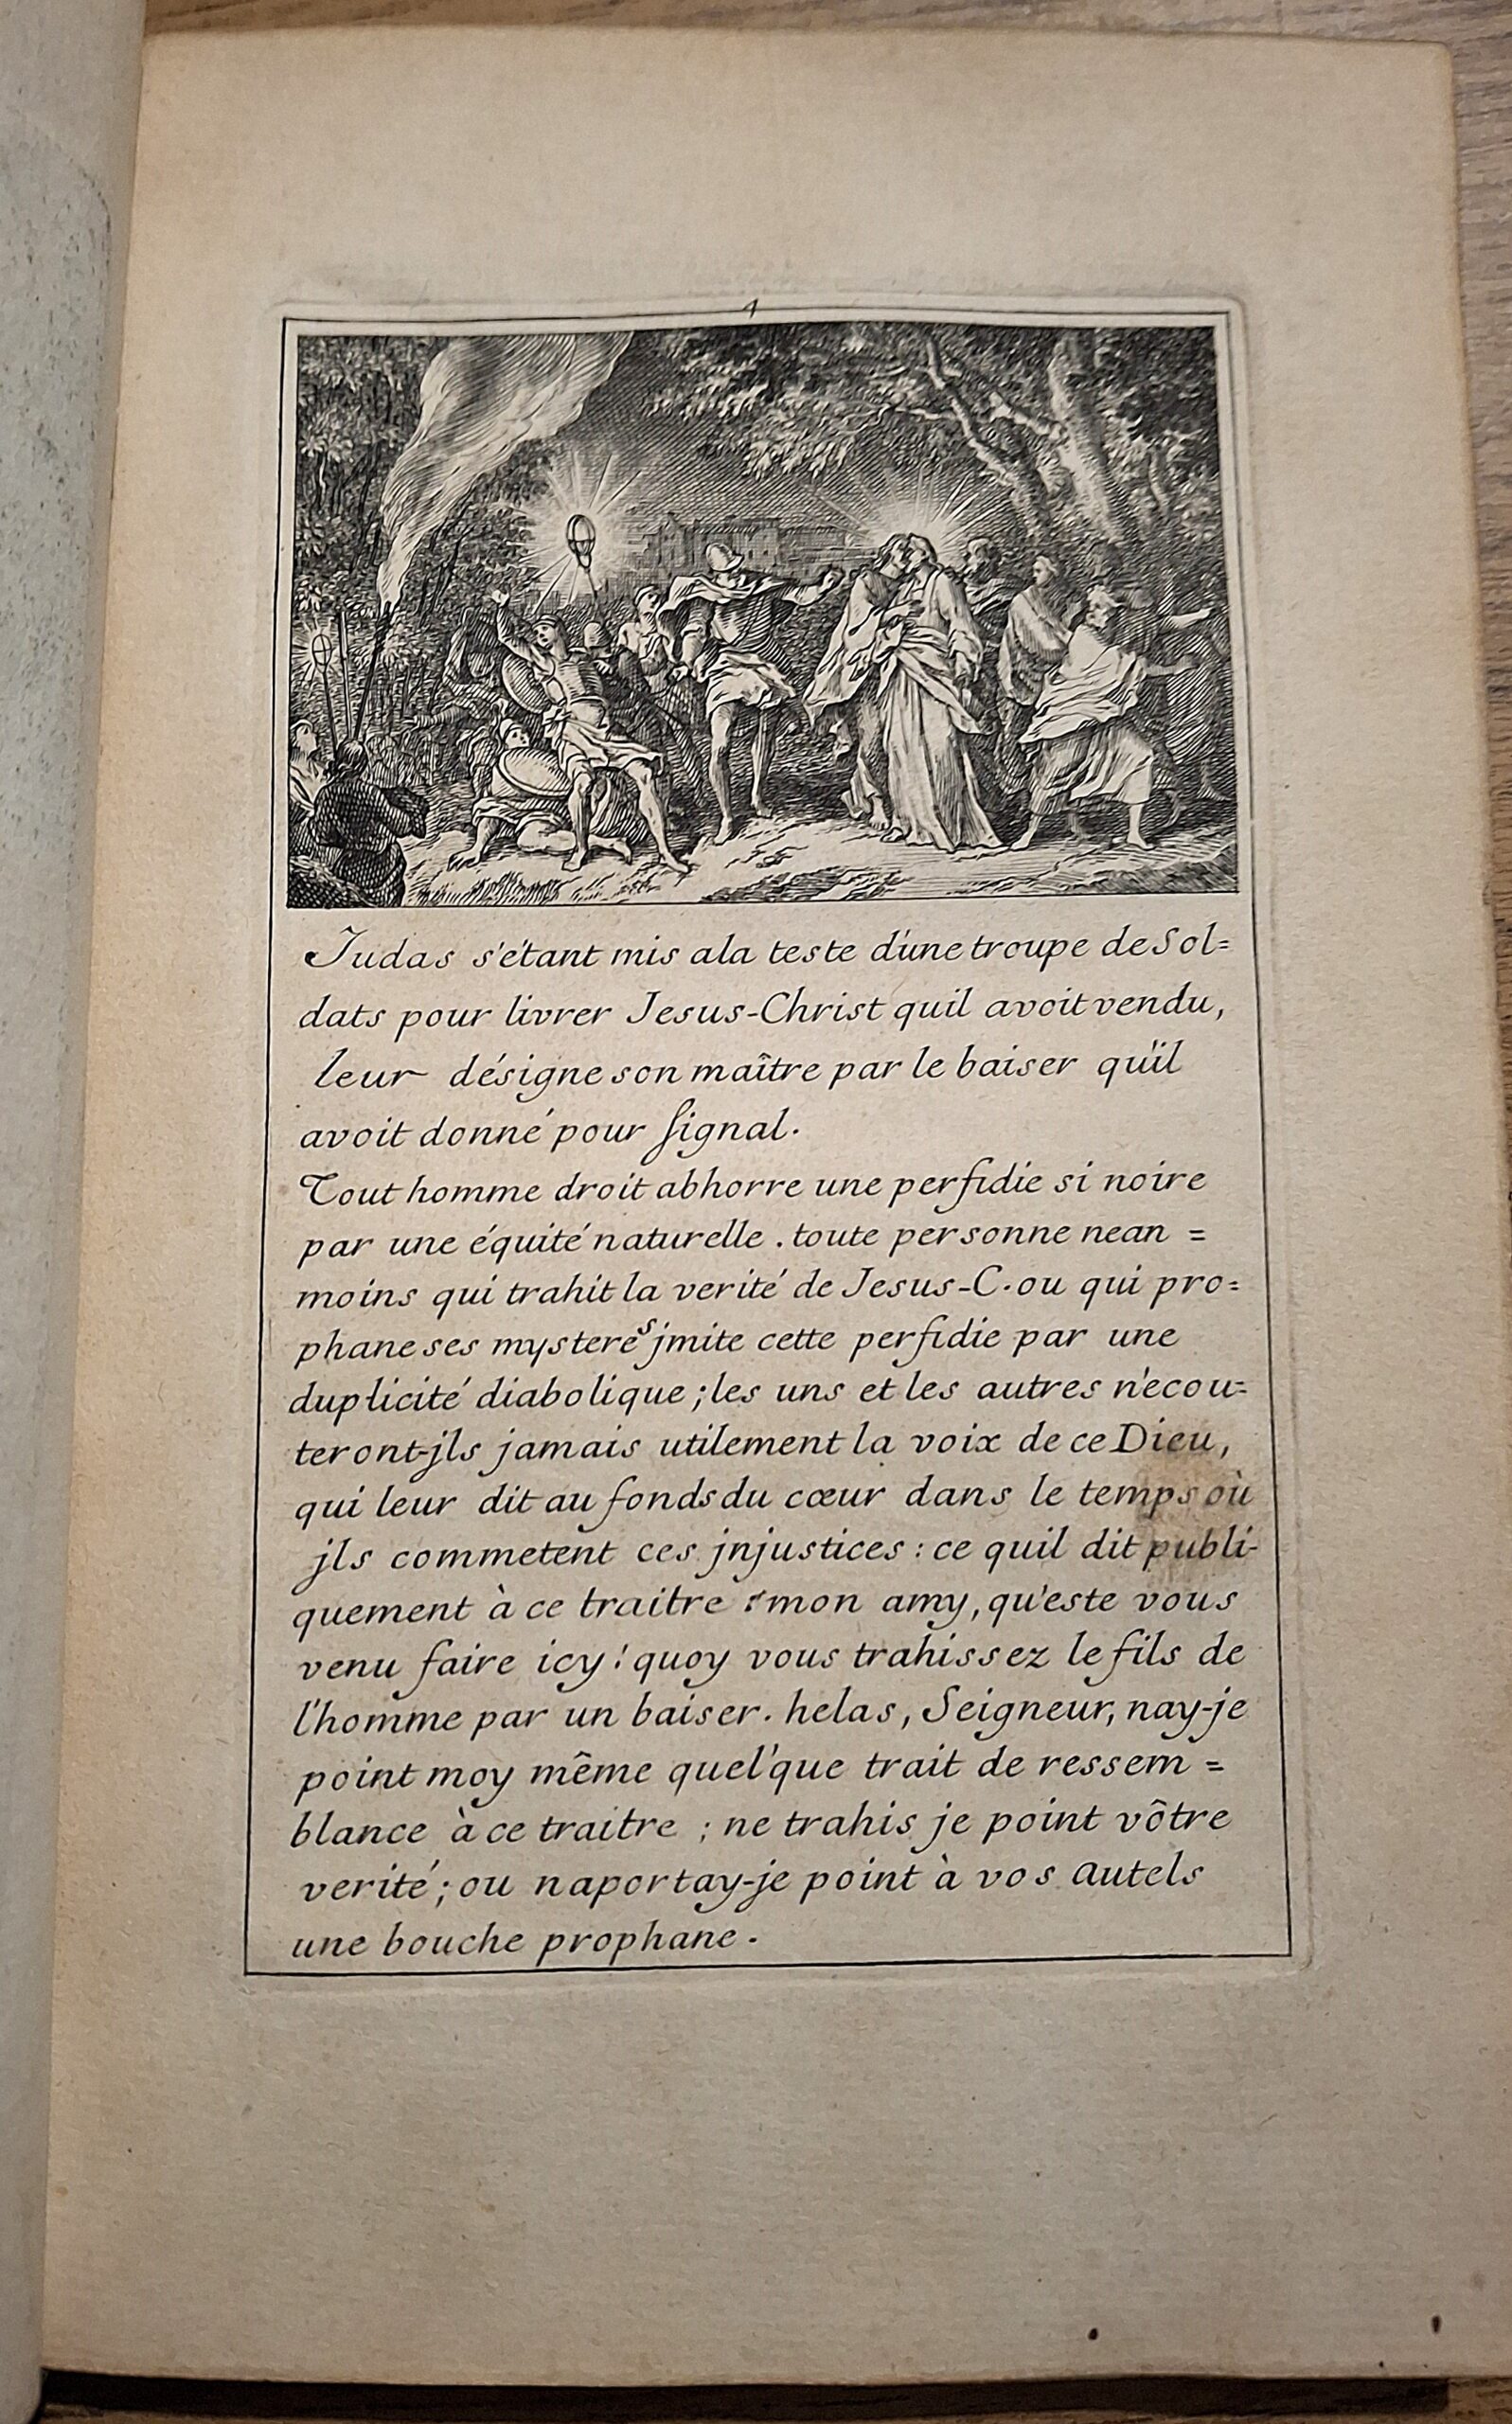 1
Judas s'étant mis ala teste d'une troupe de Sol=
dats pour livrer Jesus-Christ quil avoit vendu,
leur désigne son maître par le baiser qu'il
avoit donné pour signal.
Tout homme droit abhorre une perfidie si noire
par une équité naturelle. toute personne nean=
moins qui trahit la verité de Jesus-C. ou qui pro=
phane ses mysteres jmite cette perfidie par une
duplicité diabolique; les uns et les autres n'ecou=
teront-jls jamais utilement la voix de ce Dieu,
qui leur dit au fonds du cœur dans le temps où
jls commetent ces jnjustices: ce quil dit publi-
quement à ce traitre: mon amy, qu'este vous
venu faire icy! quoy vous trahissez le fils de
l'homme par un baiser. helas, Seigneur, nay-je
point moy même quel'que trait de ressem=
blance à ce traitre; ne trahis je point vôtre
verité; ou naportay-je point à vos autels
une bouche prophane.